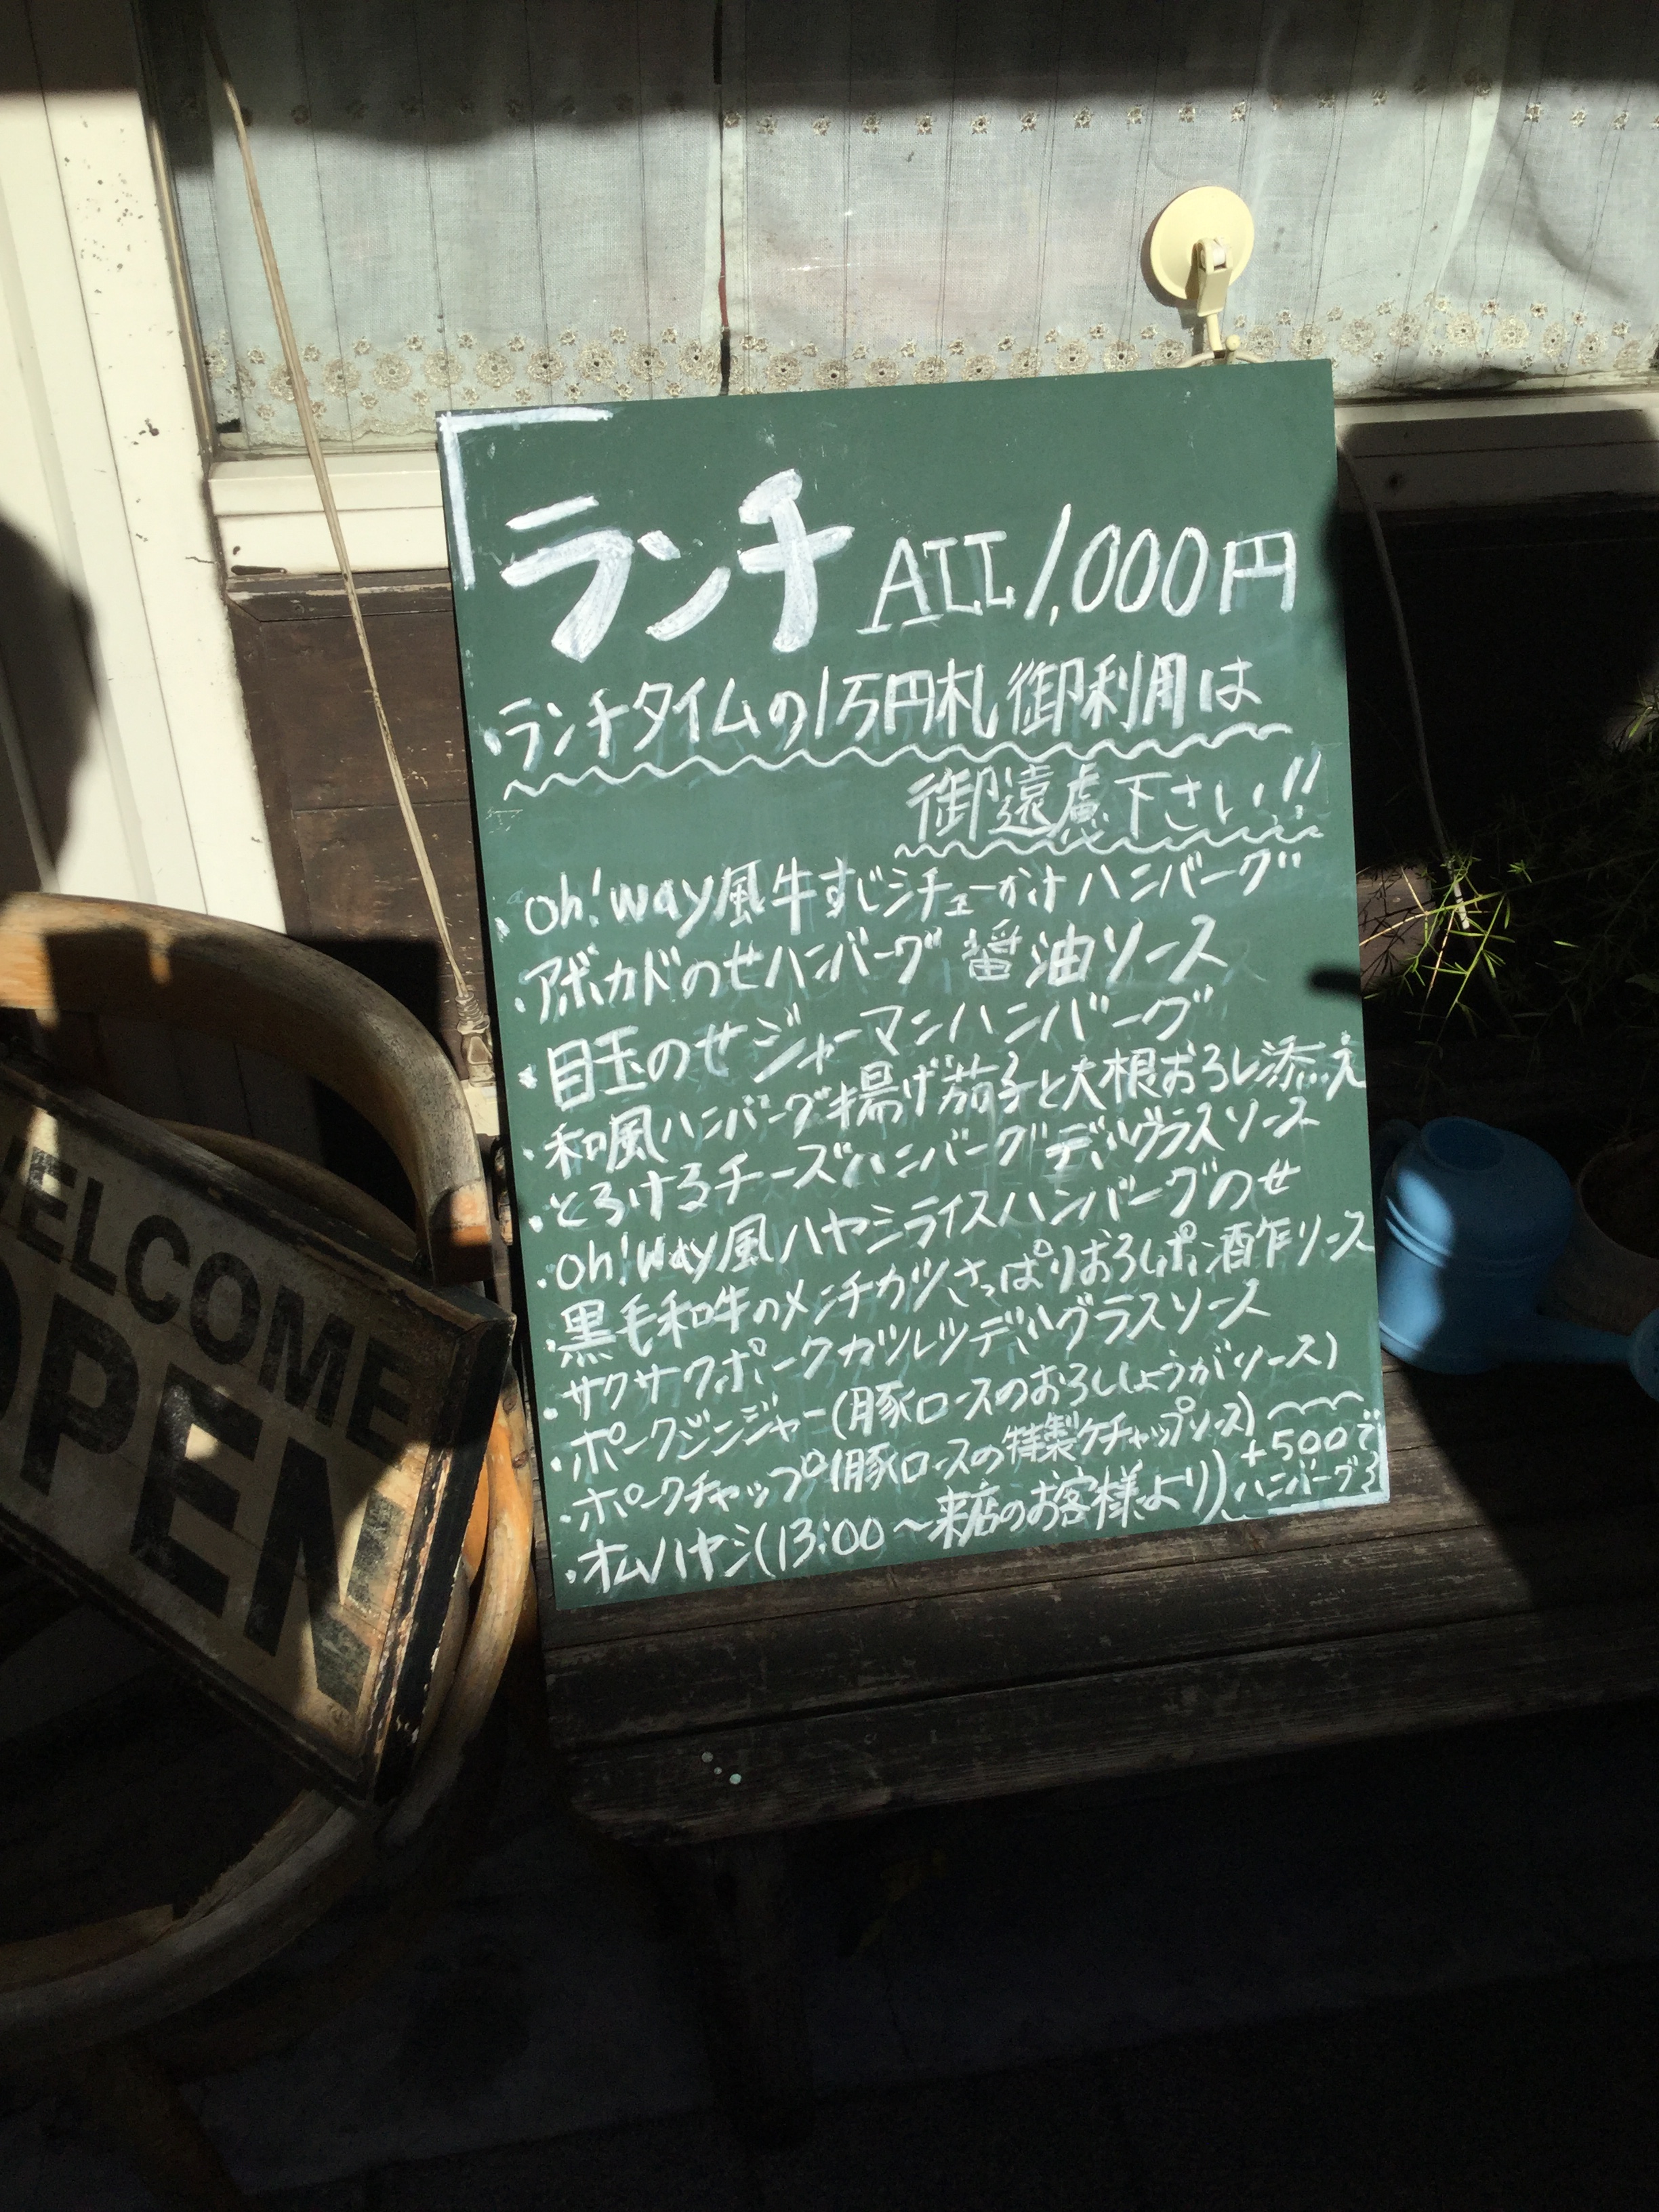 ランチ ALL 1,000円
・ランチタイムの1万円札御利用は
御遠慮下さい!!
・oh!way風牛すじシチューかけハンバーグ
・アボカドのせハンバーグ 醤油ソース
・目玉のせジャーマンハンバーグ
・和風ハンバーグ揚げ茄子と大根おろし添え
・とろけるチーズハンバーグデミグラスソース
・oh!way風ハヤシライスハンバーグのせ
・黒毛和牛のメンチカツさっぱりおろしポン酢ソース
・サクサクポークカツレツデミグラスソース
・ポークジンジャー(豚ロースのおろししょうがソース)
・ポークチャップ(豚ロースの特製ケチャップソース)
・オムハヤシ(13:00～来店のお客様より)
+500で
ハンバーグ
WELCOME
OPEN